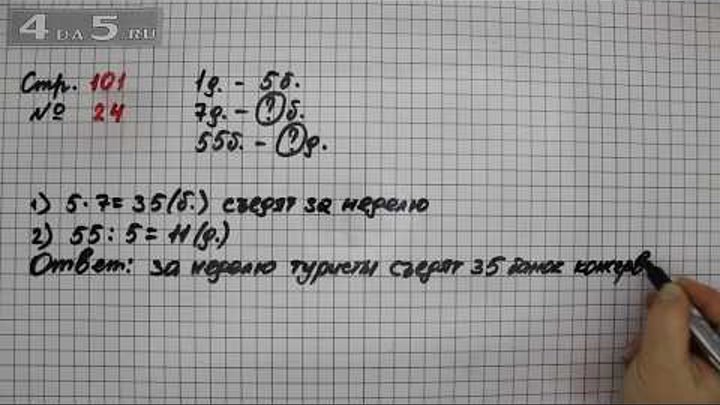 4 ДА 5.RU
Стр. 101
№ 24
1д. - 5б.
7д. - ? б.
55б. - ? д.
1) 5·7=35(б.) съедят за неделю
2) 55:5=11(д.)
Ответ: за неделю туристы съедят 35 банок консерв